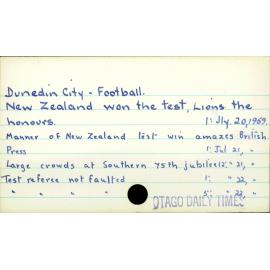 Dunedin City - Football.
New Zealand won the test, Lions the
honours. 1: Jly. 20, 1959.
Manner of New Zealand test win amazes British
Press 1: Jul 21, "
Large crowds at Southern 75th jubilee 12: " 21, "
Test referee not faulted 1: " 22, "
" " " " 5: " 22, "
OTAGO DAILY TIMES